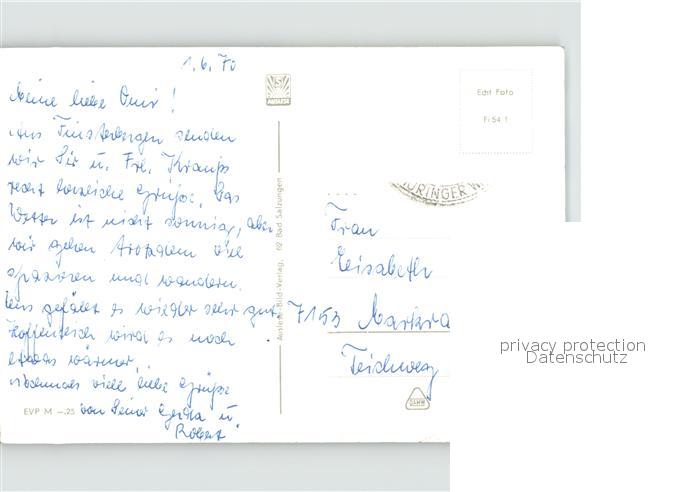 1.6.70
Meine liebe Omi!
Aus Finsterbergen senden
wir Dir u. Frl. Krauß
recht herzliche Grüße. Das
Wetter ist nicht sonnig, aber
wir gehen trotzdem viel
spazieren und wandern.
Uns gefällt es wieder sehr gut.
Hoffentlich wird es noch
etwas wärmer.
Nochmals viele liebe Grüße
von Deiner Gerda u.
Robert
EVP M –.25
Auslese-Bild-Verlag, 62 Bad Salzungen
AUSLESE
Echt Foto
Fi 54 1
THÜRINGER W
Frau
Elisabeth
7153 Markra
Teichweg
DAHW
privacy protection
Datenschutz